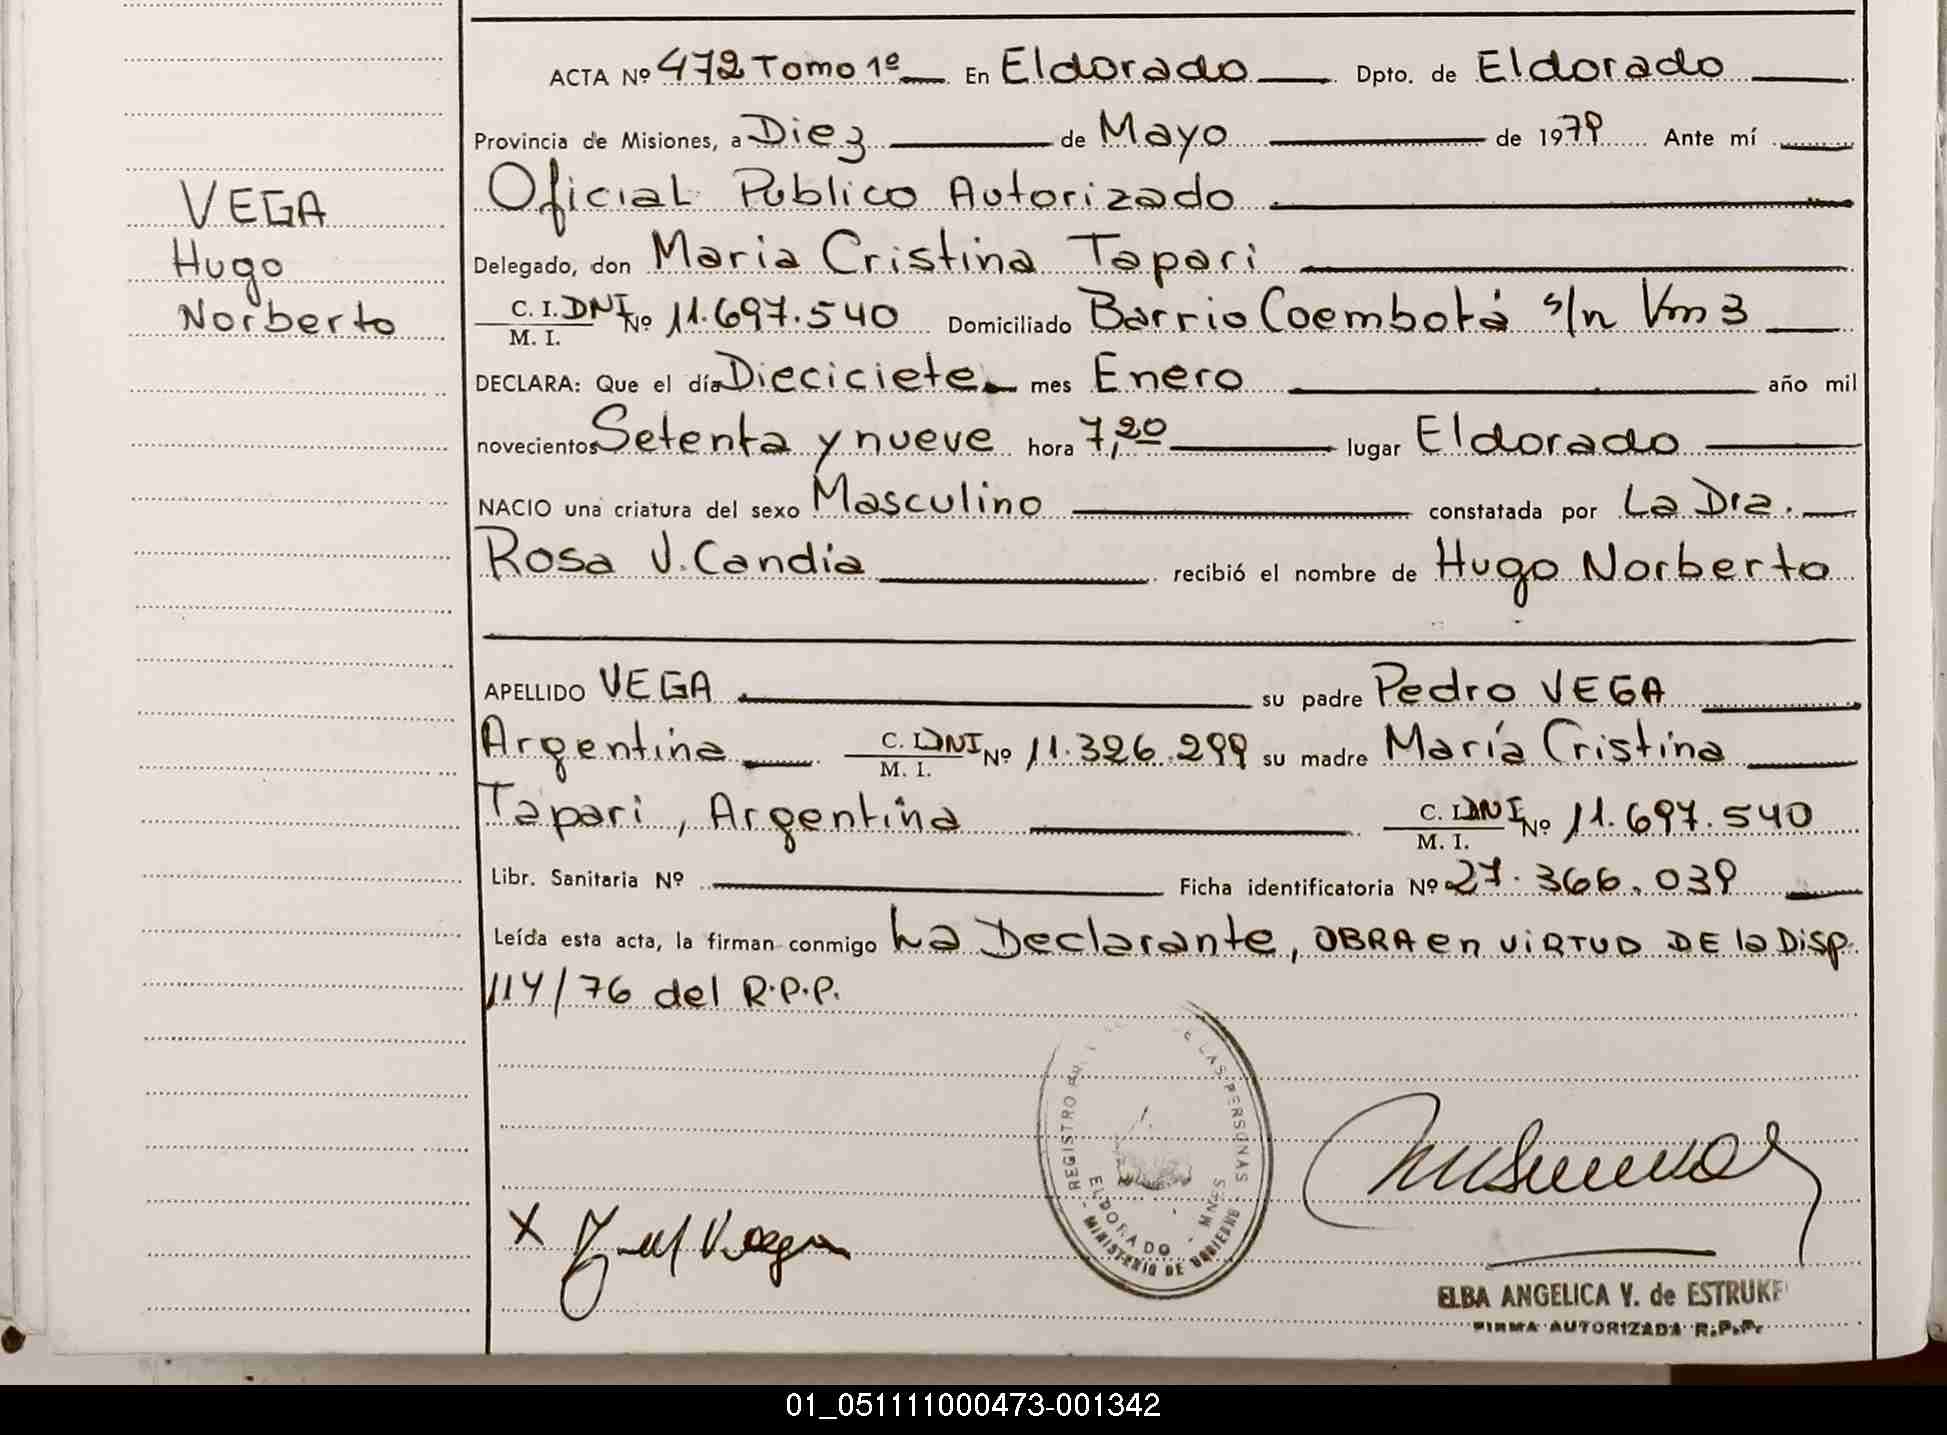 ACTA Nº 472 Tomo 1º En Eldorado Dpto. de Eldorado
Provincia de Misiones, a Diez de Mayo de 1979 Ante mí
Oficial Publico Autorizado
Delegado, don Maria Cristina Tapari
C. I. DNI Nº 11.697.540 Domiciliado Barrio Coembotá s/n Km 3
M. I.
DECLARA: Que el día Dieciciete mes Enero año mil
novecientos Setenta y nueve hora 7,20 lugar Eldorado
NACIO una criatura del sexo Masculino constatada por La Dra.
Rosa V. Candia recibió el nombre de Hugo Norberto
APELLIDO VEGA su padre Pedro VEGA
Argentina C. I. DNI Nº 11.326.299 su madre María Cristina
M. I.
Tapari, Argentina C. I. DNI Nº 11.697.540
M. I.
Libr. Sanitaria Nº Ficha identificatoria Nº 27.366.039
Leída esta acta, la firman conmigo La Declarante, OBRA en VIRTUD DE la Disp.
114/76 del R.P.P.
VEGA
Hugo
Norberto
REGISTRO DE LAS PERSONAS
ELDORADO - MNES
MINISTERIO DE GOBIERNO
X Vega
ELBA ANGELICA V. de ESTRUKE
FIRMA AUTORIZADA R.P.P.
01_051111000473-001342